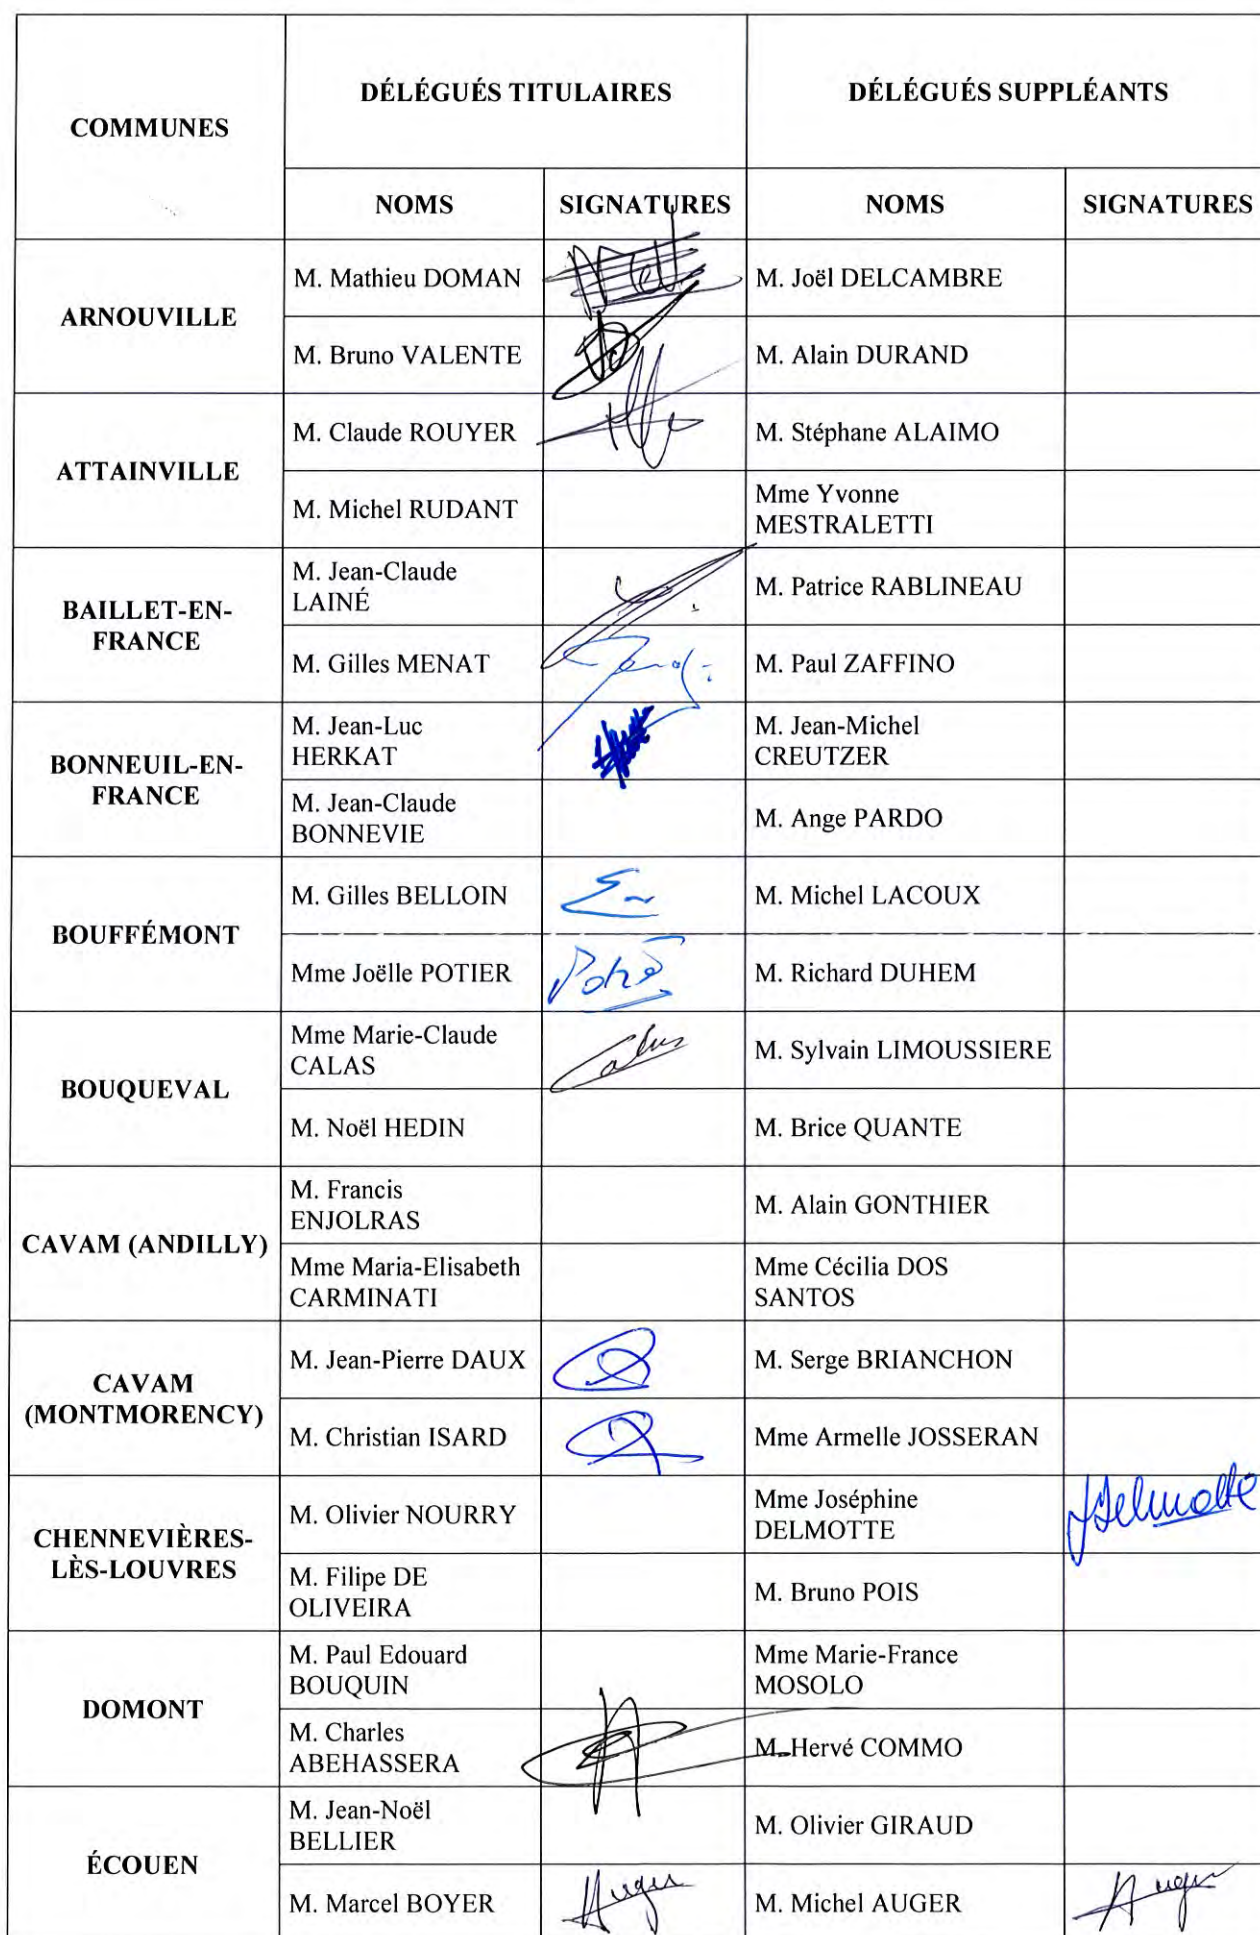 COMMUNES
DÉLÉGUÉS TITULAIRES
DÉLÉGUÉS SUPPLÉANTS
NOMS
SIGNATURES
NOMS
SIGNATURES
ARNOUVILLE
M. Mathieu DOMAN
M. Joël DELCAMBRE
M. Bruno VALENTE
M. Alain DURAND
ATTAINVILLE
M. Claude ROUYER
M. Stéphane ALAIMO
M. Michel RUDANT
Mme Yvonne
MESTRALETTI
BAILLET-EN-
FRANCE
M. Jean-Claude
LAINÉ
M. Patrice RABLINEAU
M. Gilles MENAT
M. Paul ZAFFINO
BONNEUIL-EN-
FRANCE
M. Jean-Luc
HERKAT
M. Jean-Michel
CREUTZER
M. Jean-Claude
BONNEVIE
M. Ange PARDO
BOUFFÉMONT
M. Gilles BELLOIN
M. Michel LACOUX
Mme Joëlle POTIER
M. Richard DUHEM
BOUQUEVAL
Mme Marie-Claude
CALAS
Calas
M. Sylvain LIMOUSSIERE
M. Noël HEDIN
M. Brice QUANTE
CAVAM (ANDILLY)
M. Francis
ENJOLRAS
M. Alain GONTHIER
Mme Maria-Elisabeth
CARMINATI
Mme Cécilia DOS
SANTOS
CAVAM
(MONTMORENCY)
M. Jean-Pierre DAUX
M. Serge BRIANCHON
M. Christian ISARD
Mme Armelle JOSSERAN
CHENNEVIÈRES-
LÈS-LOUVRES
M. Olivier NOURRY
Mme Joséphine
DELMOTTE
JDelmotte
M. Filipe DE
OLIVEIRA
M. Bruno POIS
DOMONT
M. Paul Edouard
BOUQUIN
Mme Marie-France
MOSOLO
M. Charles
ABEHASSERA
M. Hervé COMMO
ÉCOUEN
M. Jean-Noël
BELLIER
M. Olivier GIRAUD
M. Marcel BOYER
Auger
M. Michel AUGER
Auger